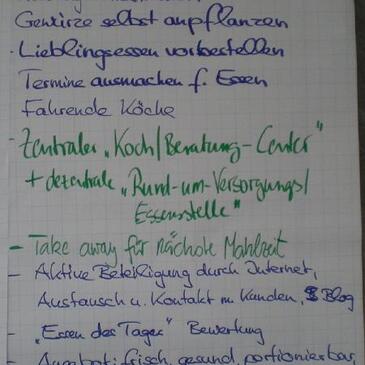 Gewürze selbst anpflanzen
· Lieblingsessen vorbestellen
Termine ausmachen f. Essen
Fahrende Köche
- Zentraler „Koch/Beratung-Center"
+ dezentrale „Rund-um-Versorgungs/
Essensstelle"
- Take away für nächste Mahlzeit
- Aktive Beteiligung durch Internet,
Austausch u. Kontakt m. Kunden, Blog
- „Essen des Tages" Bewertung
- Angebot: frisch, gesund, portionierbar,